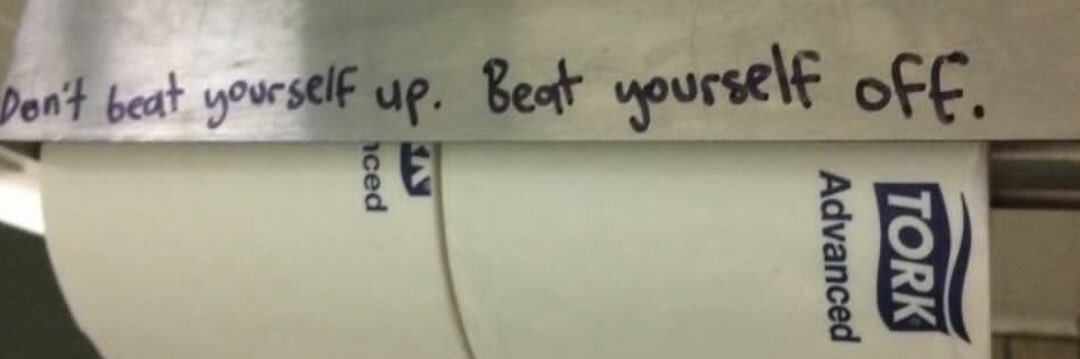 Don't beat yourself up. Beat yourself off.
nced
TORK
Advanced